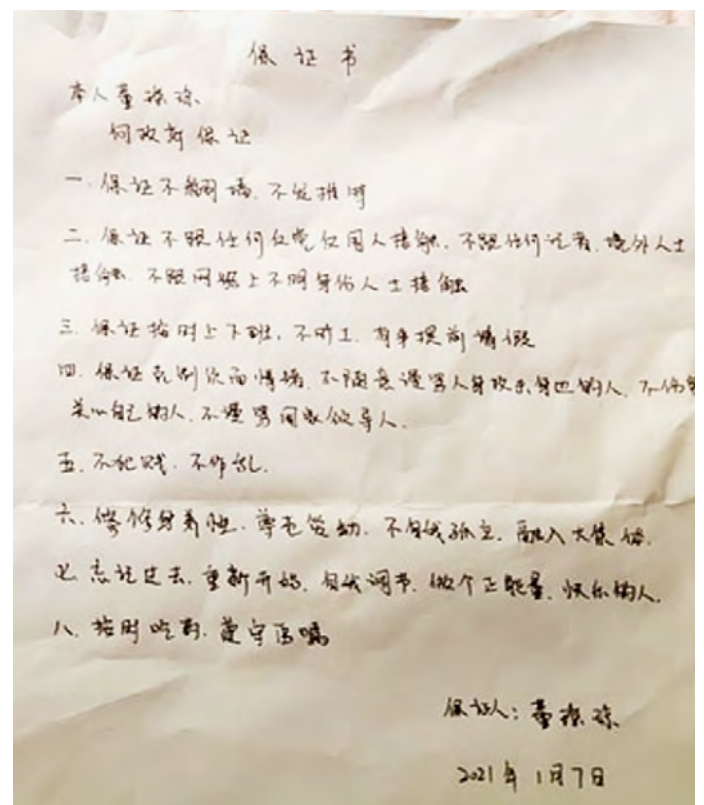 保证书
本人董瑶琼
向政府保证
一、保证不翻墙、不发推特
二、保证不跟任何在党在国人接触、不跟任何记者、境外人士
接触、不跟网络上不明身份人士接触
三、保证按时上下班、不旷工、有事提前请假
四、保证克制负面情绪、不随意谩骂人身攻击身边的人、不伤害
关心自己的人、不谩骂国家领导人。
五、不犯贱、不作乱。
六、修身养性、尊老爱幼、不自我孤立、融入大集体。
七、忘记过去、重新开始、自我调节、做个正能量、快乐的人。
八、按时吃药、遵守医嘱
保证人：董瑶琼
2021年1月7日